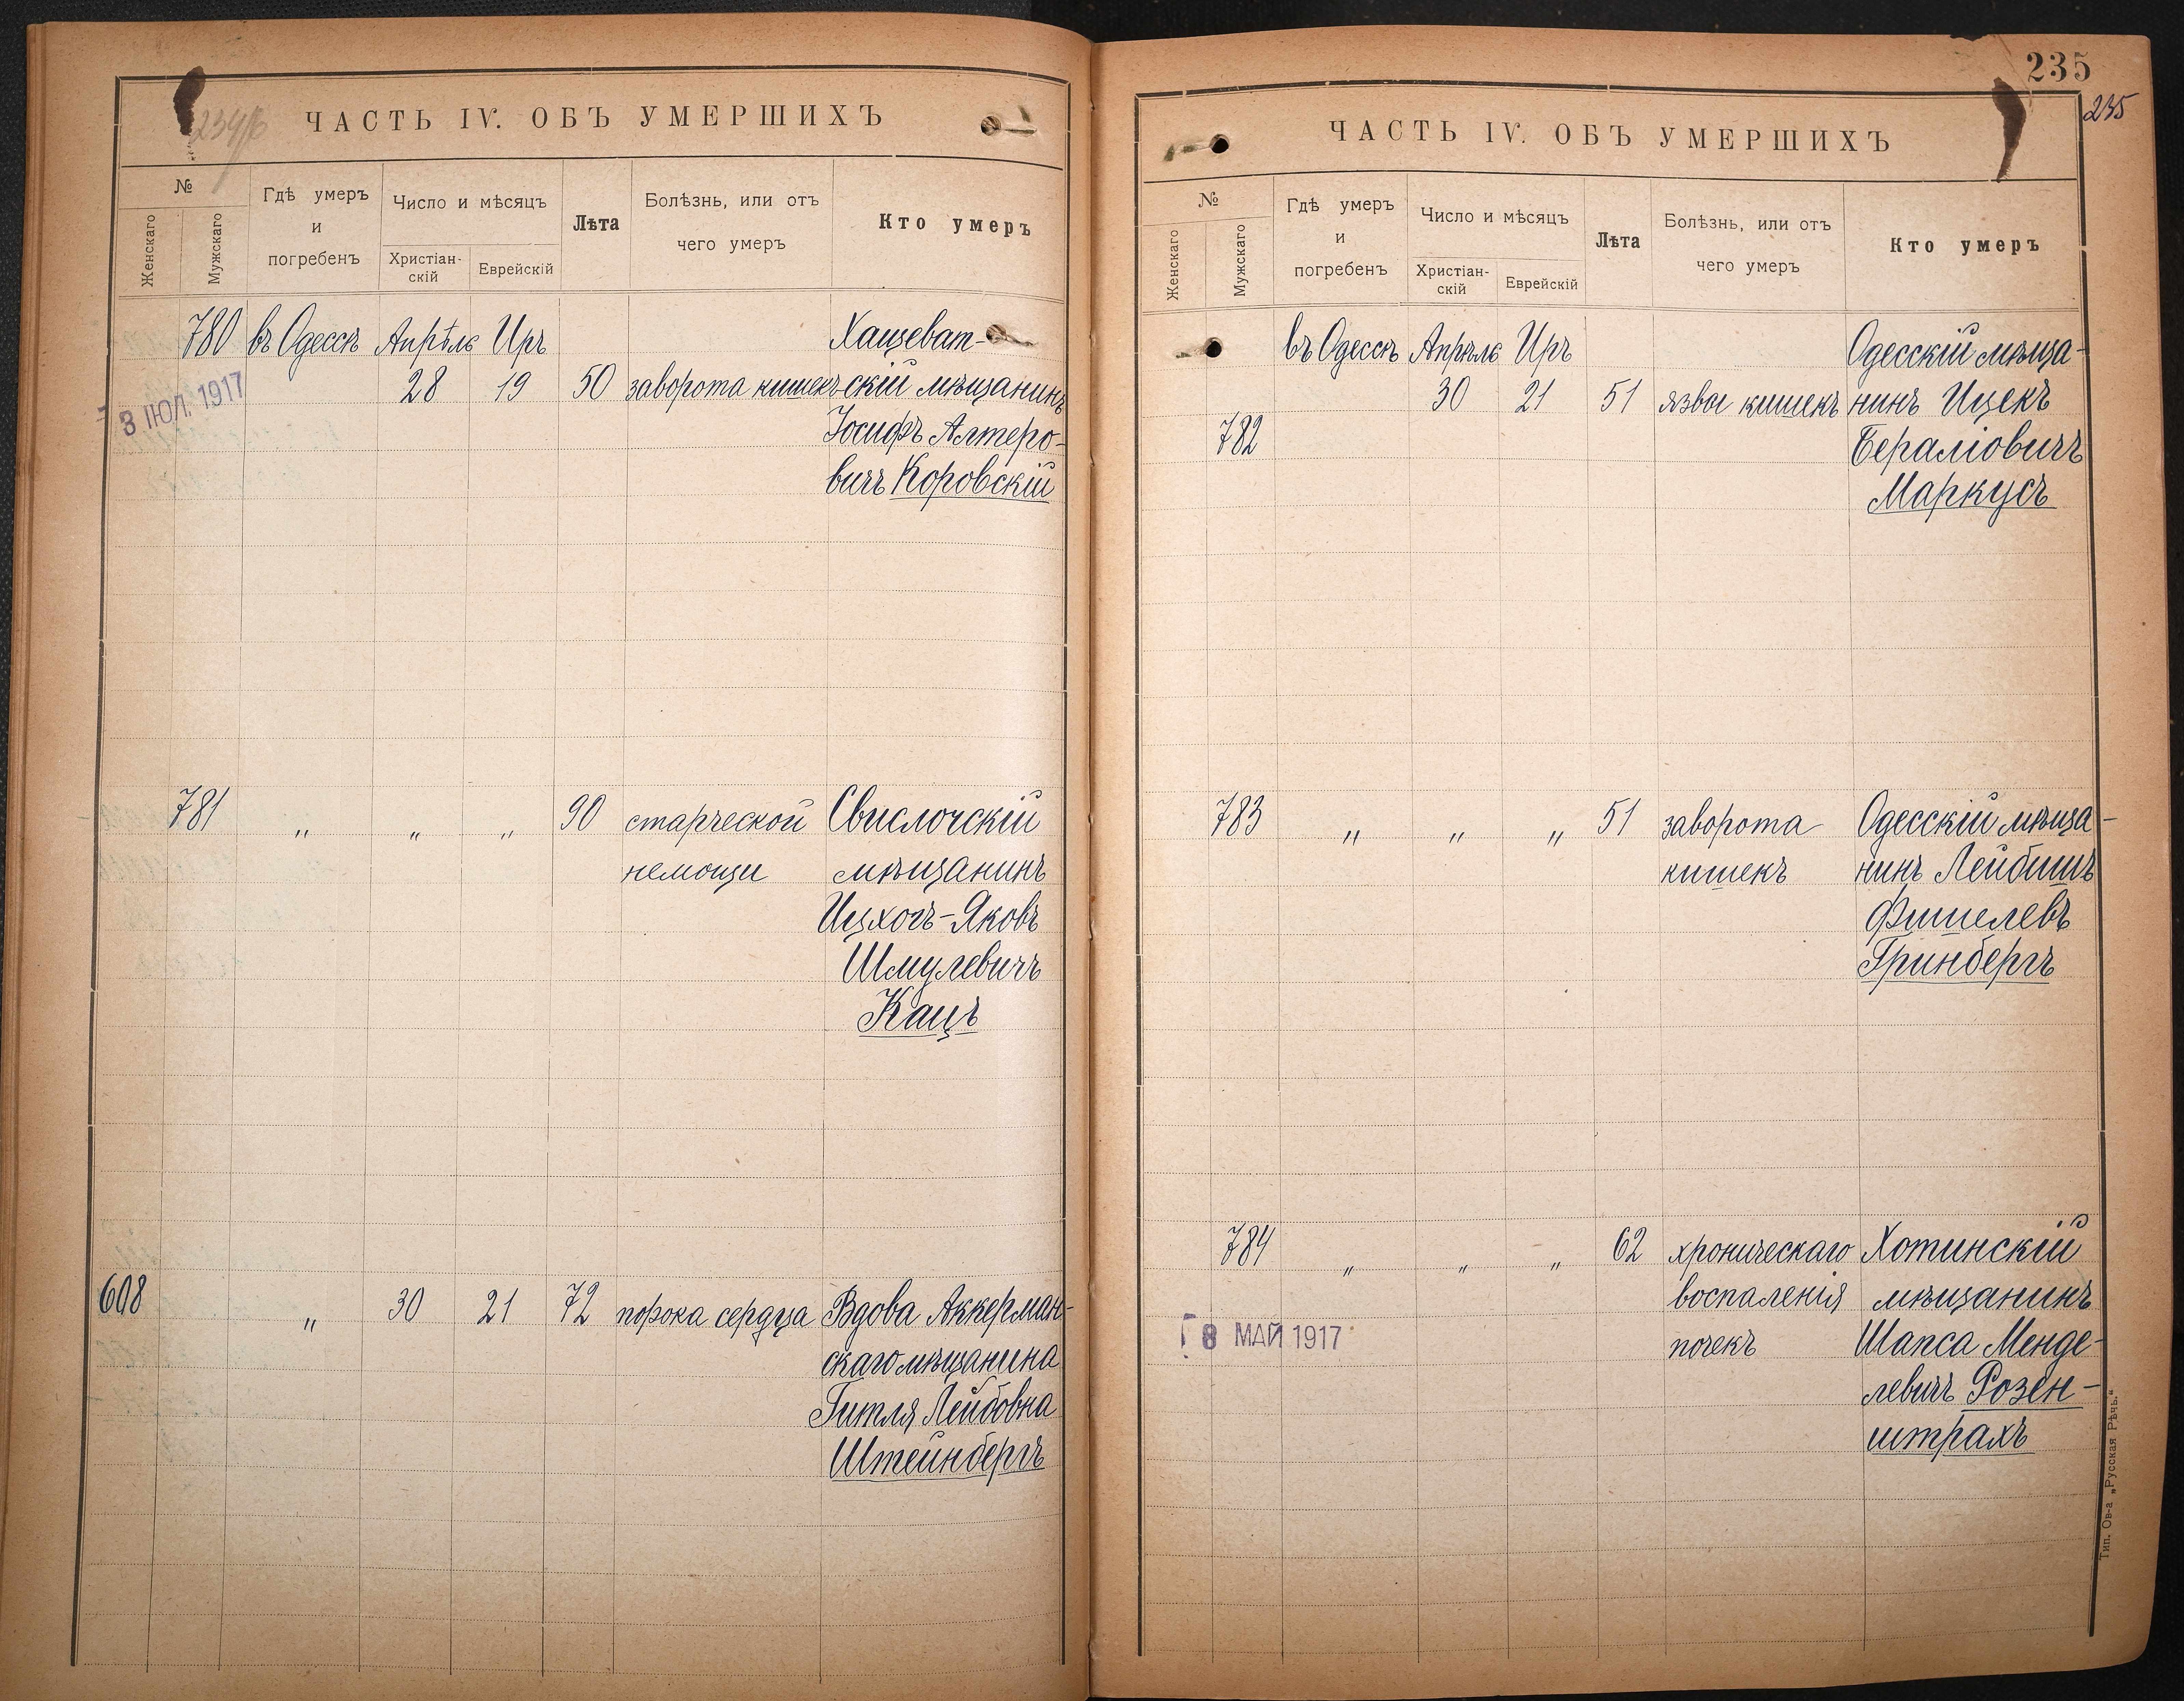 ЧАСТЬ IV. ОБЪ УМЕРШИХЪ
№
Женскаго
Мужскаго
Гдѣ умеръ
и
погребенъ
Число и мѣсяцъ
Христіан-
скій
Еврейскій
Лѣта
Болѣзнь, или отъ
чего умеръ
Кто умеръ
780 въ Одессѣ Апрѣля Ира Хащеват-
28 19 50 заворота кишекъ скій мѣщанинъ
3 ІЮЛ. 1917
Іосифъ Алтеро-
вичъ Коровскій
781 „ „ „ 90 старческой Свислочскій
немощи мѣщанинъ
Ицхокъ-Яковъ
Шмулевичъ
Кацъ
608 „ 30 21 72 порока сердца Вдова Аккерман-
скаго мѣщанина
Гитля Лейбовна
Штейнбергъ
235
235
ЧАСТЬ IV. ОБЪ УМЕРШИХЪ
№
Женскаго
Мужскаго
Гдѣ умеръ
и
погребенъ
Число и мѣсяцъ
Христіан-
скій
Еврейскій
Лѣта
Болѣзнь, или отъ
чего умеръ
Кто умеръ
въ Одессѣ Апрѣля Ира Одесскій мѣща-
30 21 51 язвы кишекъ нинъ Ицекъ
782 Бераліовичъ
Маркусъ
783 „ „ „ 51 заворота Одесскій мѣща-
кишекъ нинъ Лейбишъ
Фишелевъ
Гринбергъ
784 „ „ „ 62 хроническаго Хотинскій
воспаленія мѣщанинъ
8 МАЙ 1917 почекъ Шапса Менде-
левичъ Розен-
штрахъ
Тип. Ов-а „Русская Рѣчь.“